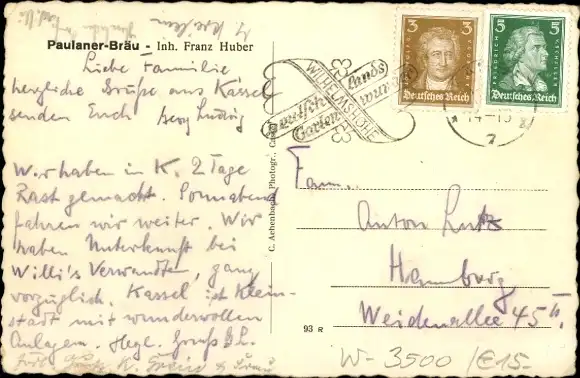 Paulaner-Bräu - Inh. Franz Huber
Liebe Familie
herzliche Grüße aus Kassel
senden Euch
Wir haben in K. 2 Tage
Rast gemacht. Sonnabend
fahren wir weiter. Wir
haben Unterkunft bei
Willi's Verwandten, ganz
vorzüglich. Kassel ist Klein-
stadt mit wundervollen
Anlagen. Hzgl. Gruß
C. Aehenbach, Photogr., Cassel
3 3
Deutsches Reich
5 5
FRIEDRICH
Deutsches Reich
WILHELMSHÖHE
Deutschlands
14-15
7
Fam.
Anton Lutz
Hamburg
Weidenallee 45 II.
93 R
W-3500 /€15-